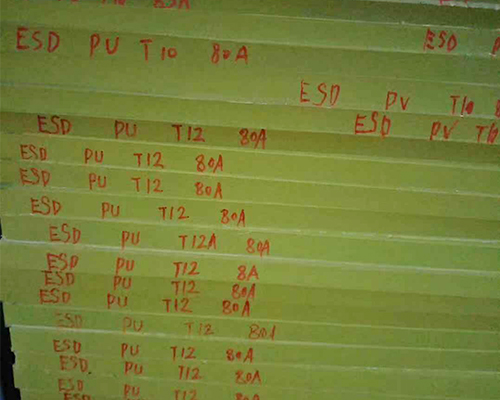 80A
ESD PU T10 80A
ESD
ESD PV T10
ESD PV T10
ESD PU T12 80A
ESD PU T12 80A
ESD PU T12 80A
ESD PU T12 80A
ESD PU T12A 80A
ESD PU T12 8A
ESD PU T12 80A
ESD PU T12 80A
ESD PU T12 80A
ESD PU T12 80A
ESD PU T12 80A
ESD PU T12 80A
ESD